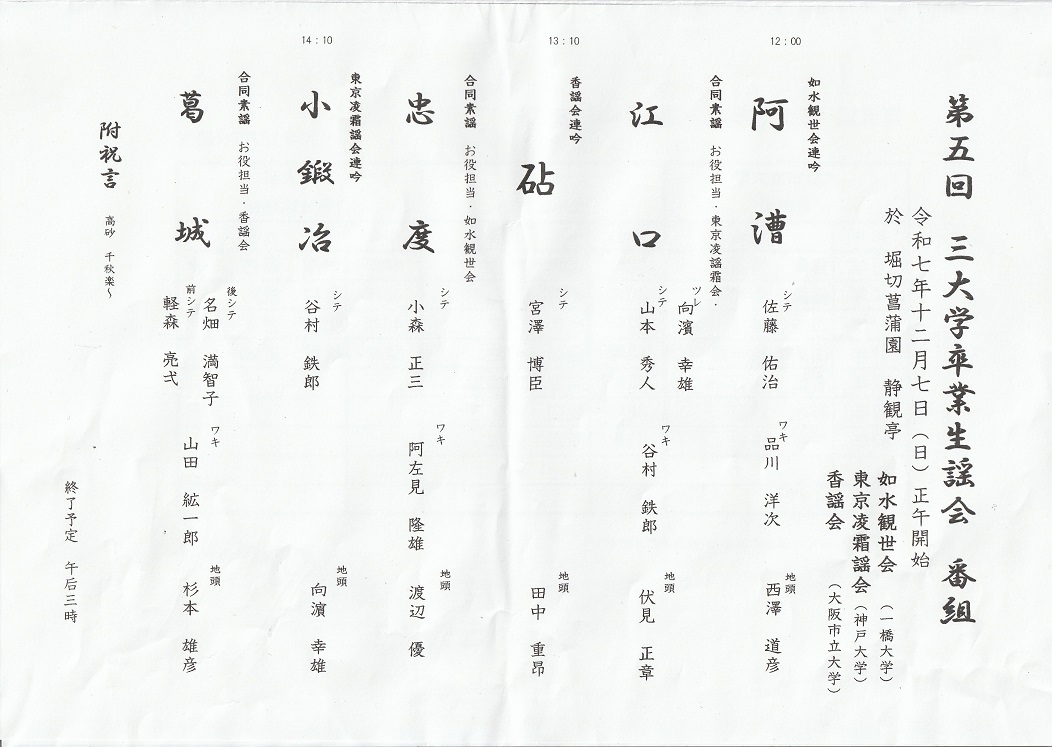 第五回 三大学卒業生謡会 番組
令和七年十二月七日（日）正午開始
於 堀切菖蒲園 静観亭
如水観世会（一橋大学）
東京凌霜謡会（神戸大学）
香謡会（大阪市立大学）
12：00
如水観世会連吟
阿漕
シテ 佐藤 佑治
ワキ 品川 洋次
地頭 西澤 道彦
合同素謡 お役担当・東京凌謡霜会・
江口
ツレ 向濱 幸雄
シテ 山本 秀人
ワキ 谷村 鉄郎
地頭 伏見 正章
13：10
香謡会連吟
砧
シテ 宮澤 博臣
地頭 田中 重昂
合同素謡 お役担当・如水観世会
忠度
シテ 小森 正三
ワキ 阿左見 隆雄
地頭 渡辺 優
14：10
東京凌霜謡会連吟
小鍛冶
シテ 谷村 鉄郎
地頭 向濱 幸雄
合同素謡 お役担当・香謡会
葛城
後シテ 名畑 満智子
前シテ 軽森 亮弍
ワキ 山田 紘一郎
地頭 杉本 雄彦
附祝言 高砂 千秋楽～
終了予定 午后三時